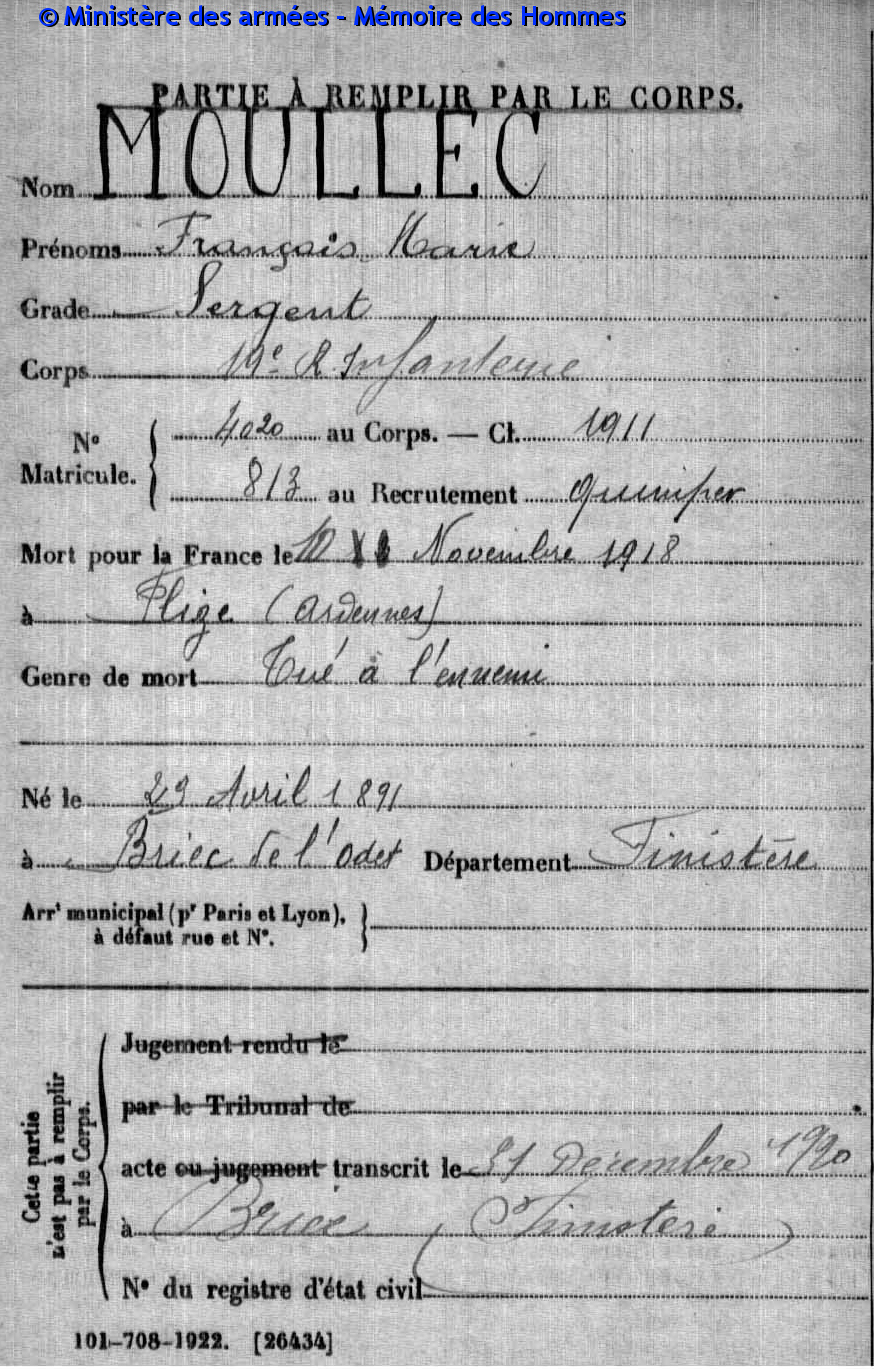 © Ministère des armées - Mémoire des Hommes
PARTIE À REMPLIR PAR LE CORPS.
Nom MOULLEC
Prénoms François Marie
Grade Sergent
Corps 19e R. Infanterie
N° Matricule. 4020 au Corps. — Cl. 1911
813 au Recrutement Quimper
Mort pour la France le 10 Novembre 1918
à Flize (Ardennes)
Genre de mort Tué à l'ennemi
Né le 29 Avril 1891
à Briec de l'Odet Département Finistère
Arrt municipal (pr Paris et Lyon),
à défaut rue et N°.
Cette partie n'est pas à remplir par le Corps.
Jugement rendu le
par le Tribunal de
acte ou jugement transcrit le 31 Décembre 1920
à Briec (Finistère)
N° du registre d'état civil
101-708-1922. [26434]